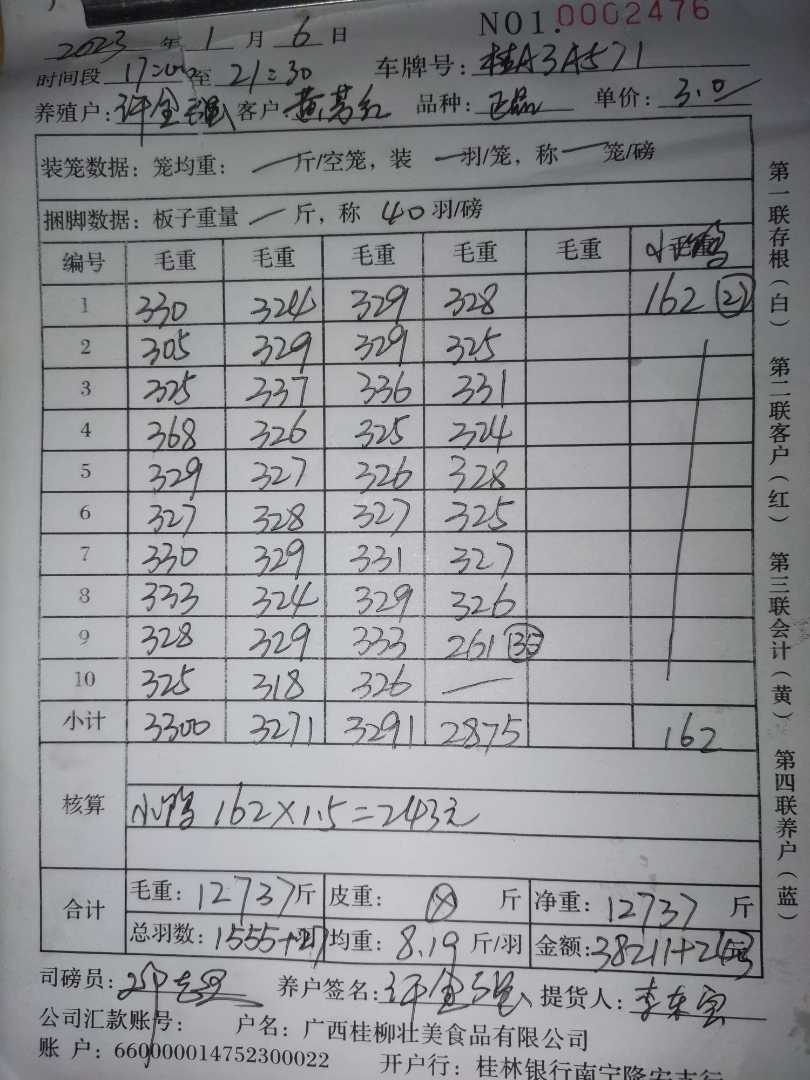 NO1.0002476
2023年1月6日
时间段17:00至21:30 车牌号:桂A3A571
养殖户:许金强 客户:黄苏红 品种:正品 单价:3.0
装笼数据:笼均重:一斤/空笼,装一羽/笼,称一笼/磅
捆脚数据:板子重量一斤,称40羽/磅
编号 毛重 毛重 毛重 毛重 毛重 小鸭
1 330 324 329 328 162 (27)
2 305 329 329 325
3 325 337 336 331
4 368 326 325 324
5 329 327 326 328
6 327 328 327 325
7 330 329 331 327
8 333 324 329 326
9 328 329 333 261 (35)
10 325 318 326 —
小计 3300 3271 3291 2875 162
核算 小鸭 162×1.5=243元
合计 毛重:12737斤 皮重: 斤 净重:12737斤
总羽数:1555+27 均重:8.19斤/羽 金额:38211+243
司磅员: 养户签名:许金强 提货人:李东宝
公司汇款账号: 户名:广西桂柳壮美食品有限公司
账 户:660000014752300022 开户行:桂林银行南宁隆安支行
第一联存根(白) 第二联客户(红) 第三联会计(黄) 第四联养户(蓝)